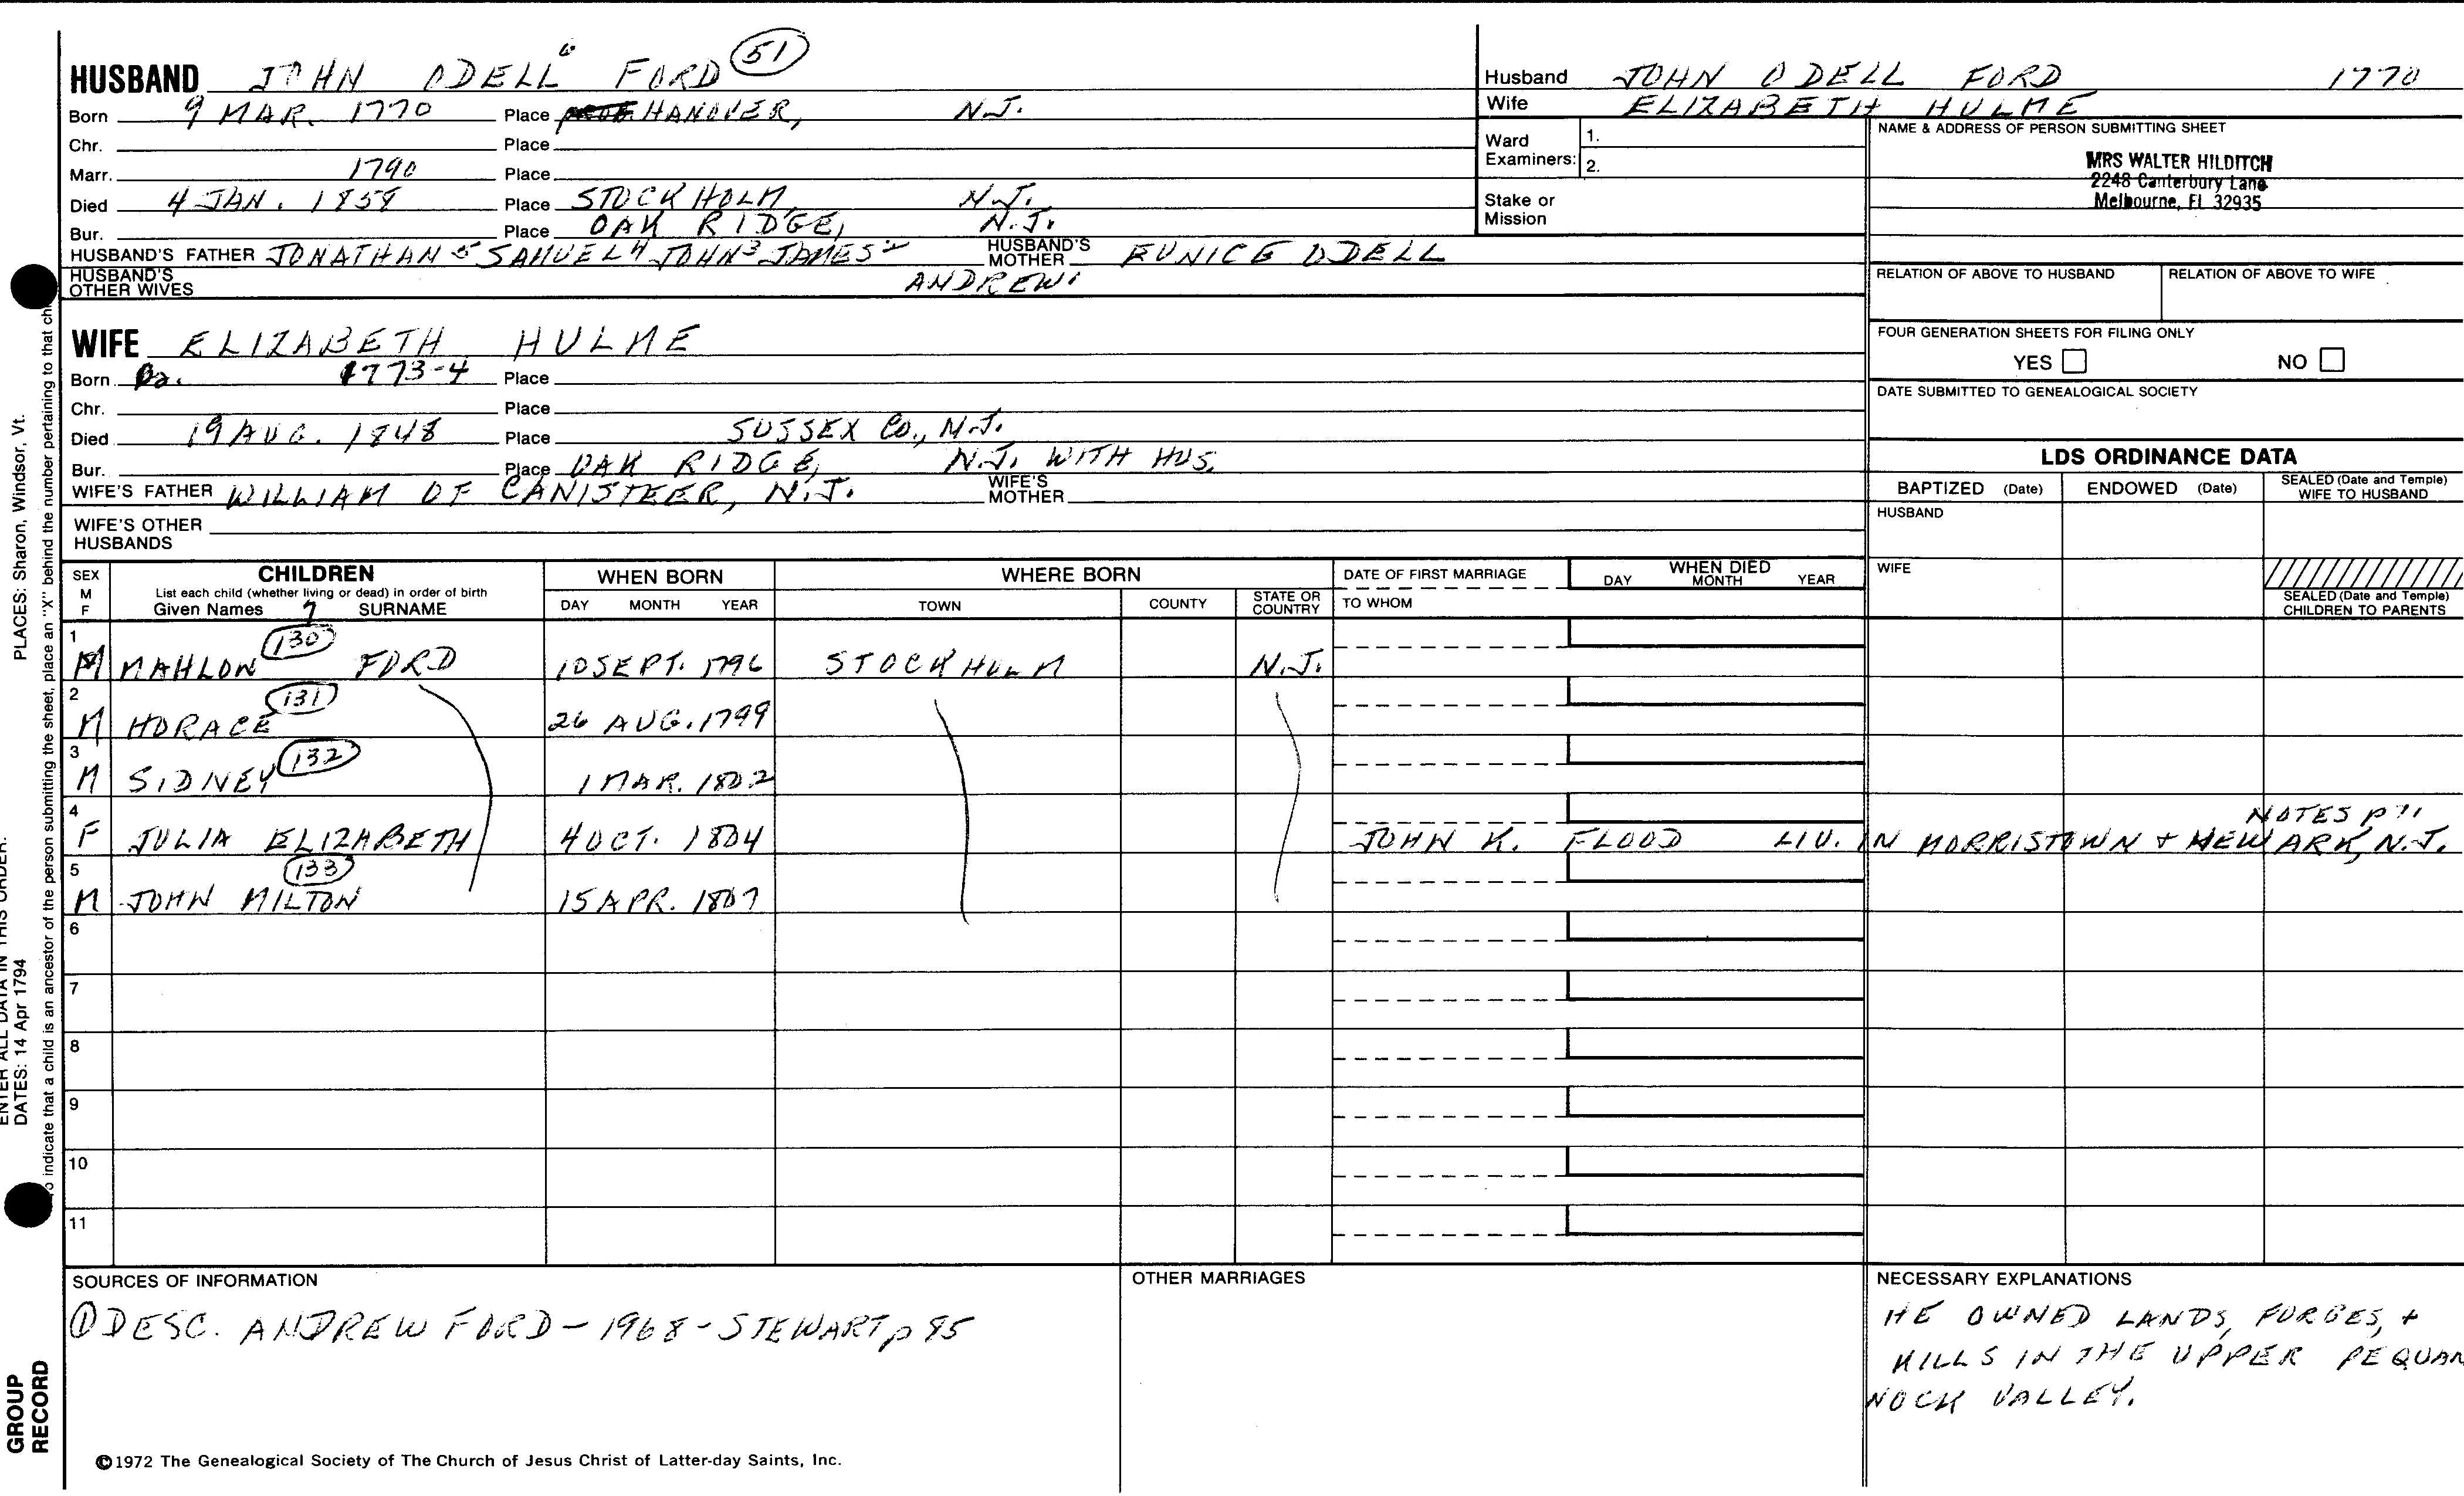 HUSBAND JOHN ODELL 6 FORD 51
Born 9 MAR. 1770 Place HANOVER, N.J.
Chr. Place
Marr. 1790 Place
Died 4 JAN. 1858 Place STOCKHOLM, N.J.
Bur. Place OAK RIDGE, N.J.
HUSBAND'S FATHER JONATHAN 5 SAMUEL 4 JOHN 3 JAMES 2 ANDREW 1 HUSBAND'S MOTHER EUNICE ODELL
HUSBAND'S OTHER WIVES
WIFE ELIZABETH HULME
Born Ca. 1773-4 Place
Chr. Place
Died 19 AUG. 1848 Place SUSSEX CO., N.J.
Bur. Place OAK RIDGE, N.J. WITH HUS.
WIFE'S FATHER WILLIAM OF CANISTEER, N.J. WIFE'S MOTHER
WIFE'S OTHER HUSBANDS
Husband JOHN ODELL FORD 1770
Wife ELIZABETH HULME
Ward Examiners: 1.
2.
Stake or Mission
NAME & ADDRESS OF PERSON SUBMITTING SHEET
MRS WALTER HILDITCH
2248 Canterbury Lane
Melbourne, Fl 32935
RELATION OF ABOVE TO HUSBAND RELATION OF ABOVE TO WIFE
FOUR GENERATION SHEETS FOR FILING ONLY
YES NO
DATE SUBMITTED TO GENEALOGICAL SOCIETY
LDS ORDINANCE DATA
BAPTIZED (Date) ENDOWED (Date) SEALED (Date and Temple) WIFE TO HUSBAND
HUSBAND
WIFE
SEALED (Date and Temple) CHILDREN TO PARENTS
SEX M F CHILDREN WHEN BORN WHERE BORN DATE OF FIRST MARRIAGE WHEN DIED
List each child (whether living or dead) in order of birth
Given Names 7 SURNAME DAY MONTH YEAR TOWN COUNTY STATE OR COUNTRY TO WHOM DAY MONTH YEAR
1 M MAHLON 130 FORD 10 SEPT. 1796 STOCKHOLM N.J.
2 M HORACE 131 26 AUG. 1799
3 M SIDNEY 132 1 MAR. 1802
4 F JULIA ELIZABETH 4 OCT. 1804 JOHN K. FLOOD LIV. IN MORRISTOWN + NEWARK, N.J. NOTES p 71
5 M JOHN MILTON 133 15 APR. 1807
6
7
8
9
10
11
SOURCES OF INFORMATION
① DESC. ANDREW FORD - 1968 - STEWART p 85
OTHER MARRIAGES
NECESSARY EXPLANATIONS
HE OWNED LANDS, FORGES, +
MILLS IN THE UPPER PEQUAN
NOCK VALLEY.
©1972 The Genealogical Society of The Church of Jesus Christ of Latter-day Saints, Inc.
PLACES: Sharon, Windsor, Vt.
ENTER ALL DATA IN THIS ORDER:
DATES: 14 Apr 1794
To indicate that a child is an ancestor of the person submitting the sheet, place an "X" behind the number pertaining to that
GROUP
RECORD